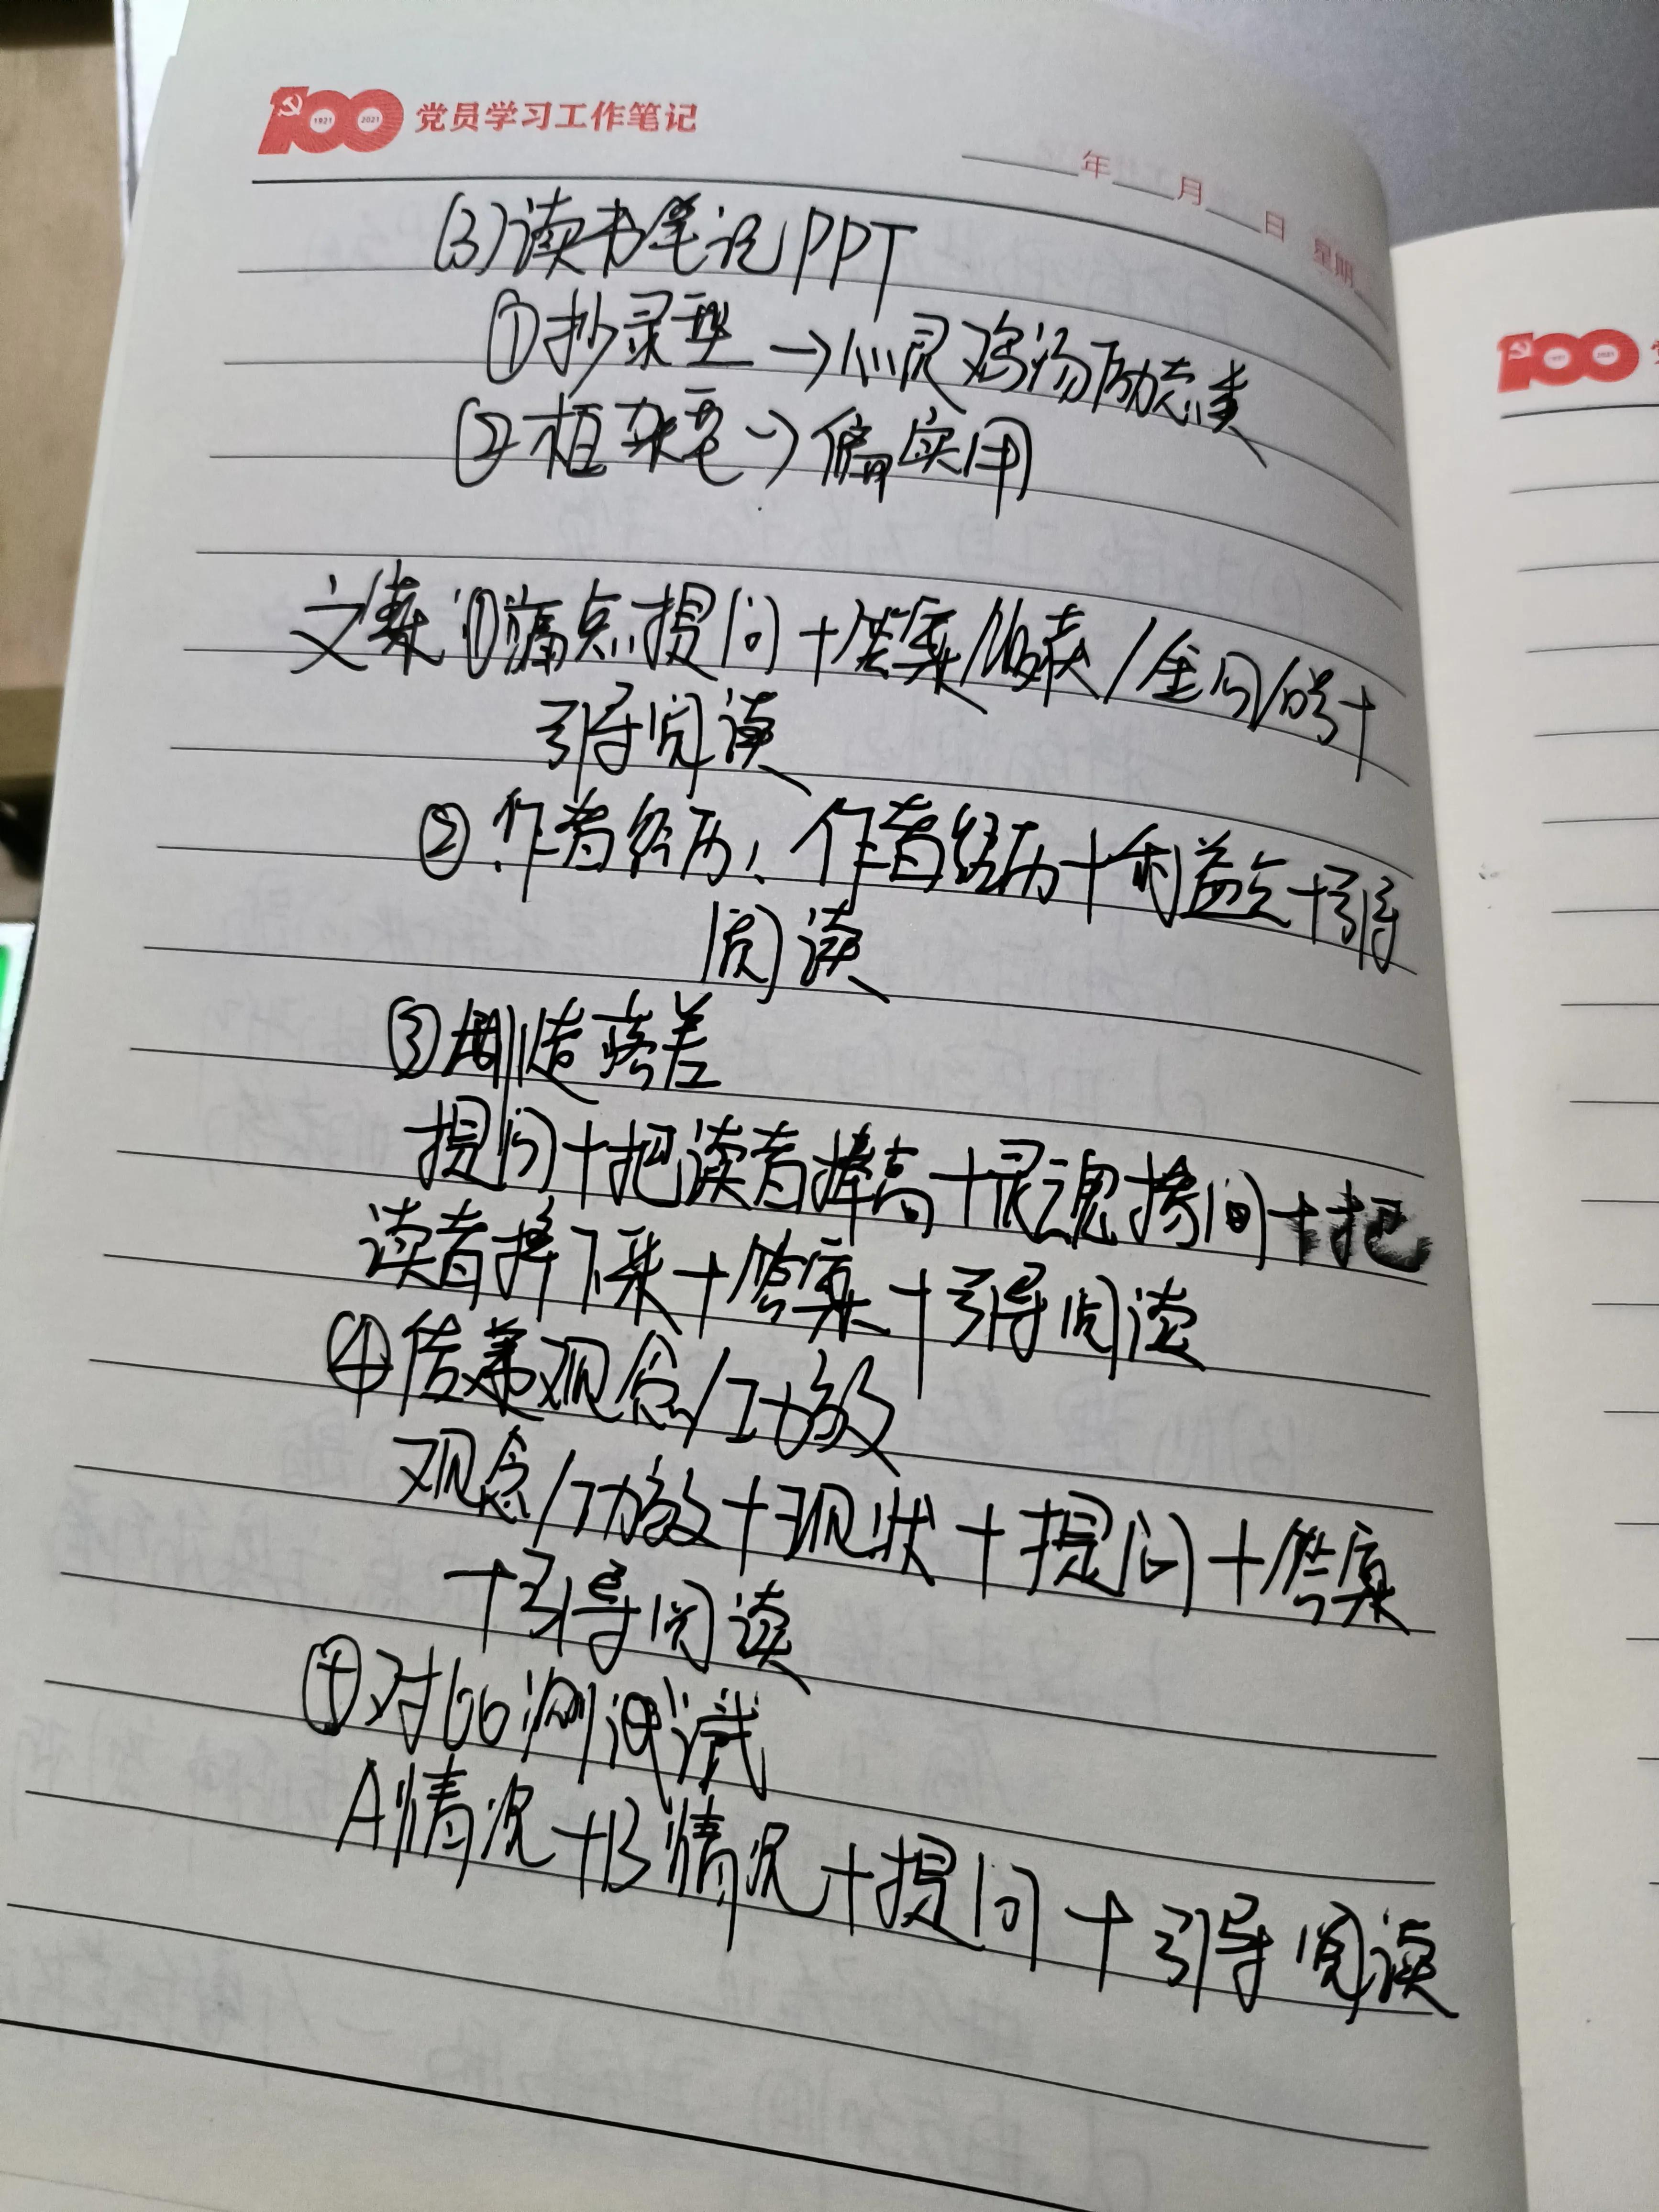 100 党员学习工作笔记
1921 2021
年 月 日 星期
(3)读书笔记PPT
①抄录型→心灵鸡汤励志类
②框架型→偏实用
文案①痛点提问+答案/ /金句/ +
引导阅读
②作者经历:作者经历+利益点+引导
阅读
③制造落差
提问+把读者捧高+灵魂拷问+把
读者摔下来+答案+引导阅读
④传递观念/功效
观念/功效+现状+提问+答案
+引导阅读
对比测试
A情况+B情况+提问+引导阅读
100